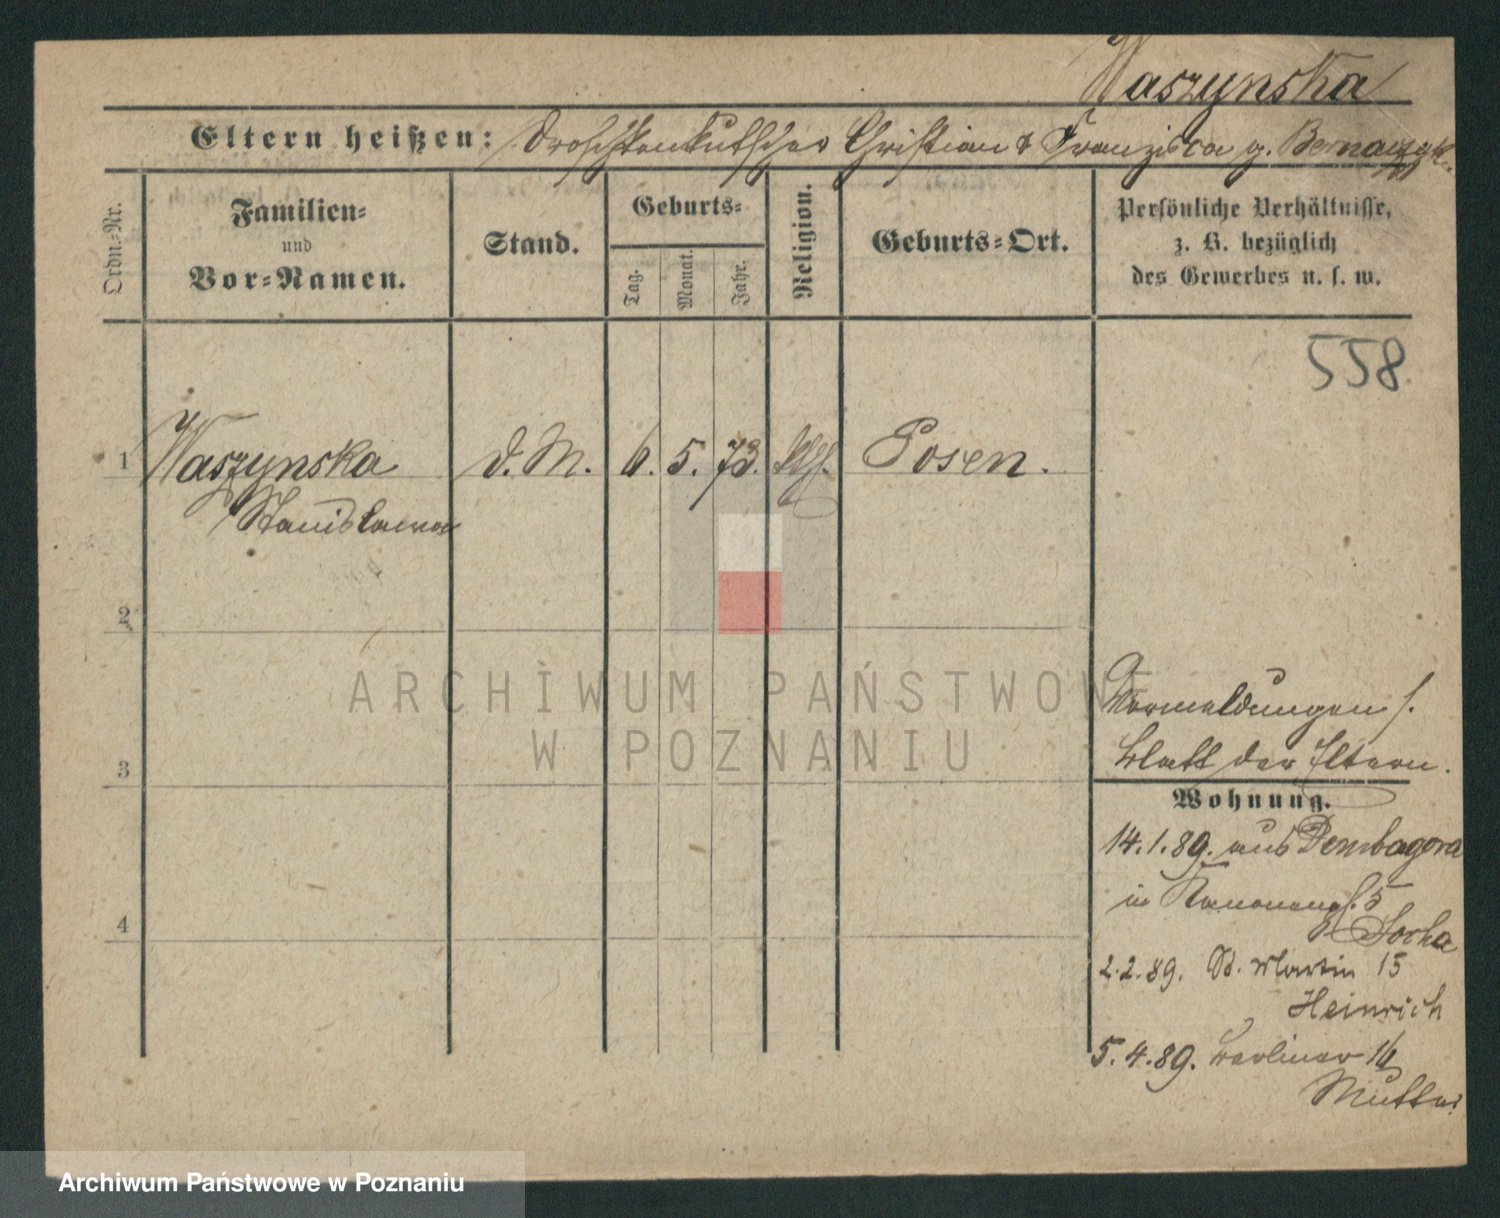 Waszynska
Eltern heißen: Droschkenkutscher Christian & Franzisca g. Bernaczyk
Ordn.-Nr.
Familien-
und
Vor-Namen.
Stand.
Geburts-
Tag.
Monat.
Jahr.
Religion.
Geburts-Ort.
Persönliche Verhältnisse,
z. B. bezüglich
des Gewerbes u. s. w.
558
1 Waszynska d. M. 6. 5. 73. Posen.
Stanislawa
2
3
4
Vormeldungen s.
Blatt der Eltern.
Wohnung.
14.1.89. aus Dembogora
in Kanonenpl. 5
Socha
2.2.89. St. Martin 15
Heinrich
5.4.89. Berliner 16
Mutter
ARCHIWUM PAŃSTWOWE
W POZNANIU
Archiwum Państwowe w Poznaniu